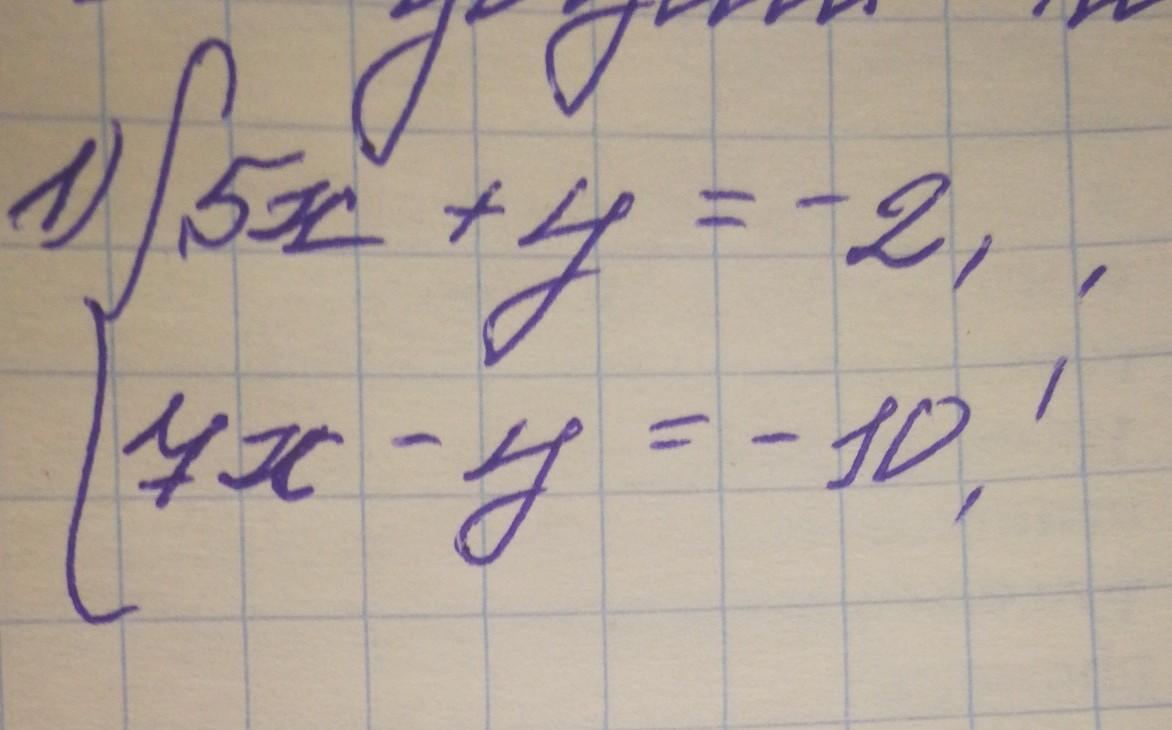 1) { 5x + y = -2,
7x - y = -10,